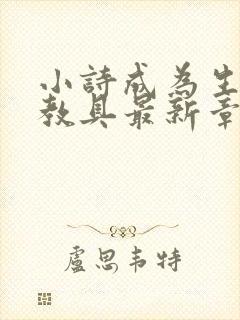 小詩成為生
教具最新章
盧思韦特